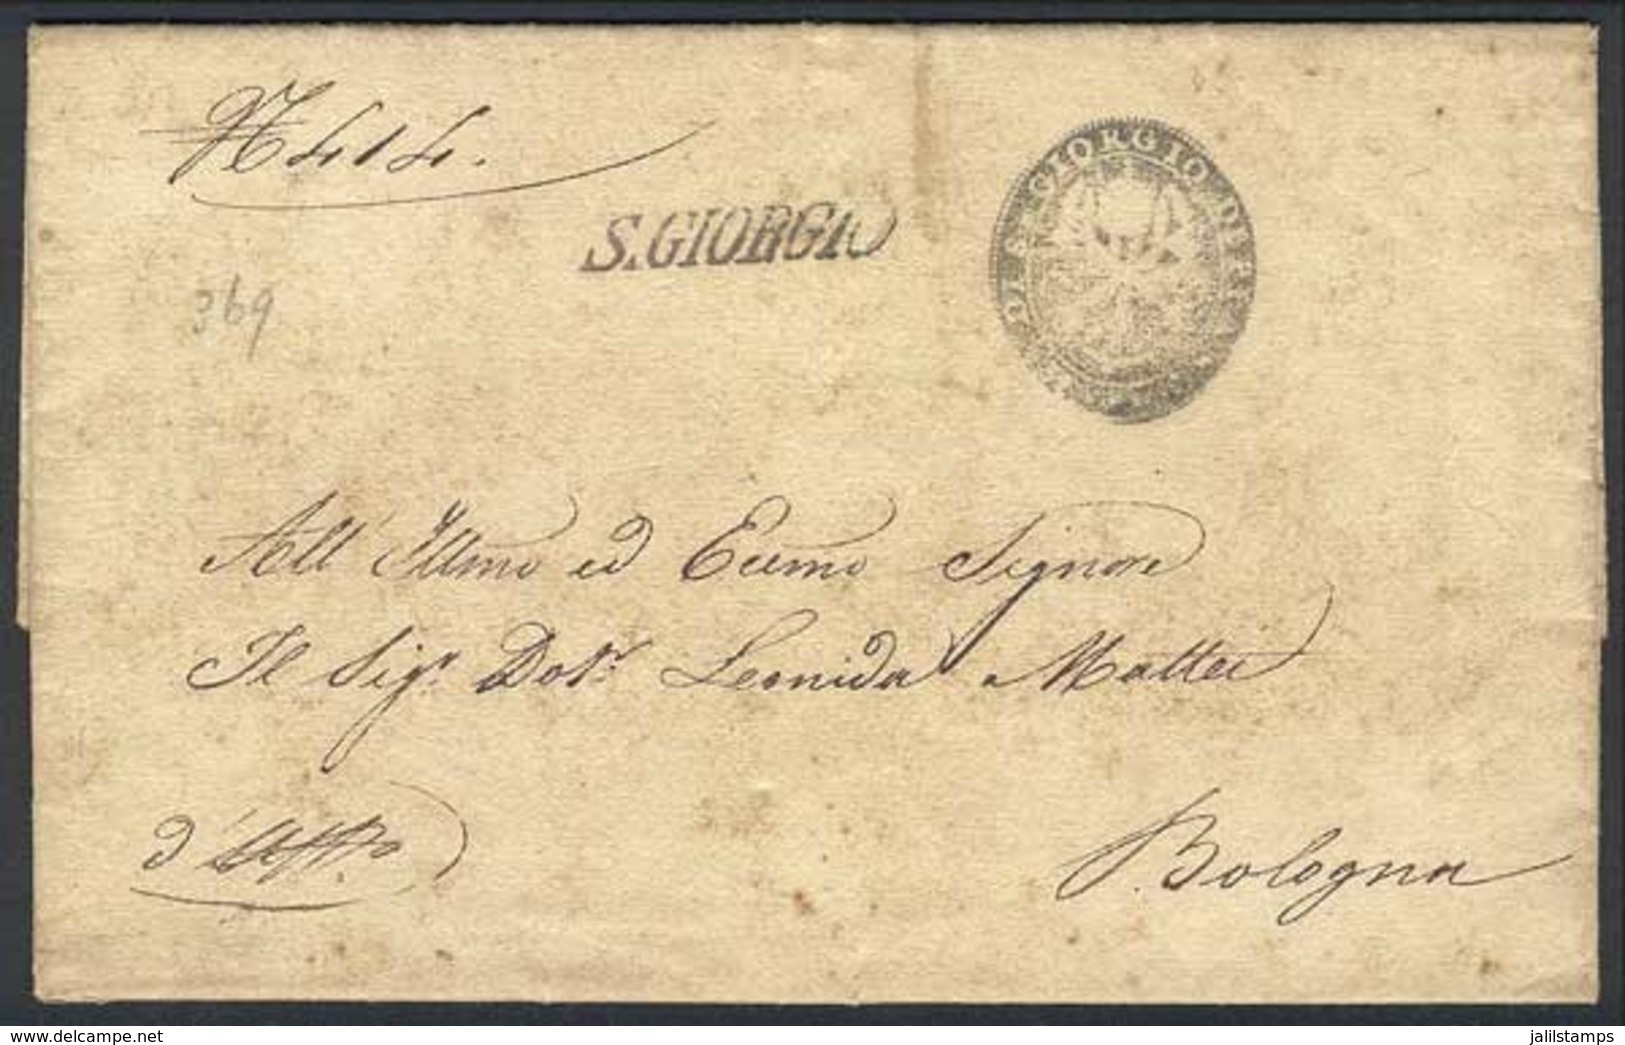 N 414.
S.GIORGIO
S. GIORGIO DI
369
All' Illmo ed Ecc̃mo Signore
Il Sigr. Dotr. Leonida Mattei
d'Uffo.
Bologna
www.delcampe.net
jalilstamps